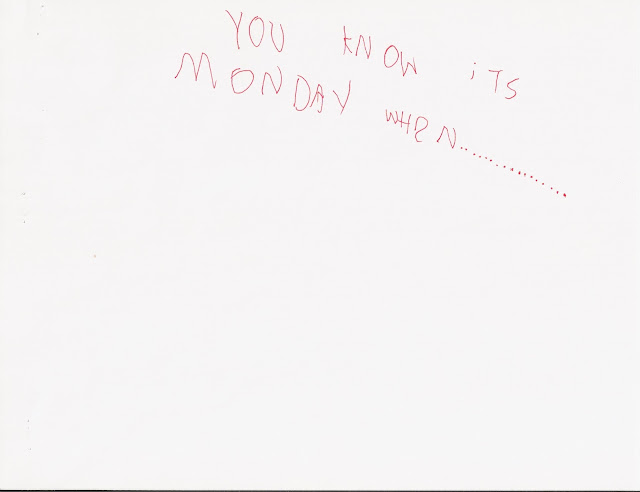 YOU KNOW iTS
MONDAY WHEN..................